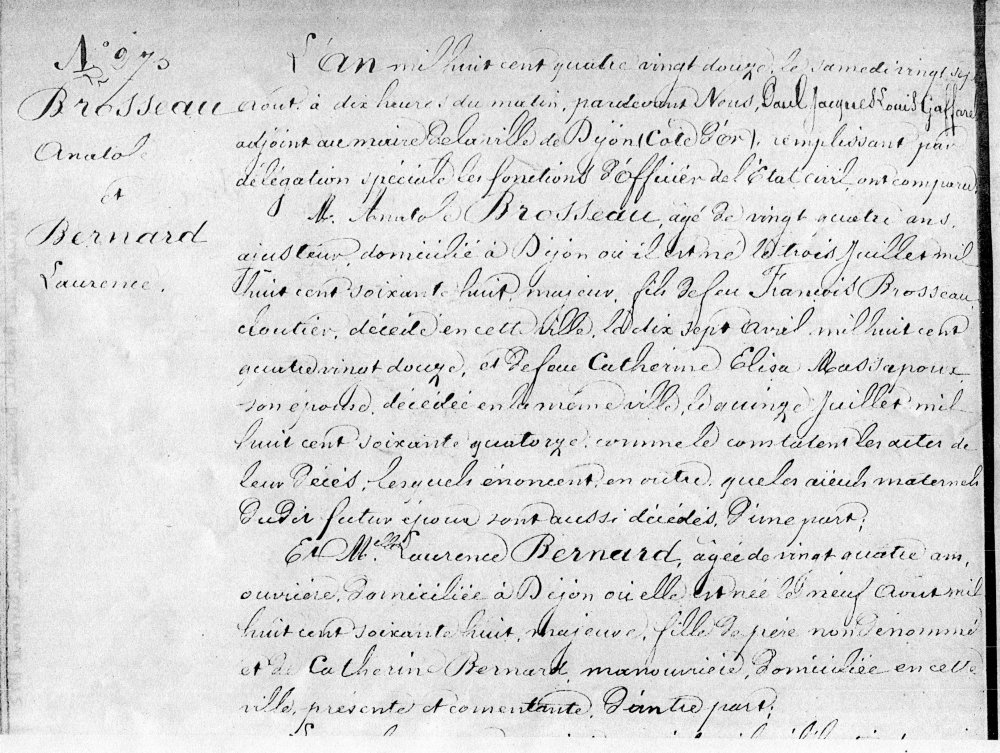 N° 973
Brosseau
Anatole
et
Bernard
Laurence.
L'an mil huit cent quatre vingt douze, le samedi vingt sept
Août, à dix heures du matin, pardevant Nous, Paul Jacques Louis Gaffarel
adjoint au maire de la ville de Dijon (Côte d'Or), remplissant par
délégation spéciale les fonctions d'Officier de l'Etat civil, ont comparu
M. Anatole Brosseau, âgé de vingt quatre ans,
ajusteur, domicilié à Dijon où il est né le trois Juillet mil
huit cent soixante huit, majeur, fils de feu François Brosseau
cloutier, décédé en cette ville, le dix sept avril mil huit cent
quatre vingt douze, et de feue Catherine Elisa Massapoux
son épouse, décédée en la même ville, le quinze Juillet mil
huit cent soixante quatorze, comme le constatent les actes de
leur décès, lesquels énoncent, en outre, que les aïeuls maternels
dudit futur époux sont aussi décédés, d'une part;
Et M.elle Laurence Bernard, âgée de vingt quatre ans,
ouvrière, domiciliée à Dijon où elle est née le neuf Août mil
huit cent soixante huit, majeure, fille de père non dénommé
et de Catherine Bernard, manouvrière, domiciliée en cette
ville, présente et consentante, d'autre part;